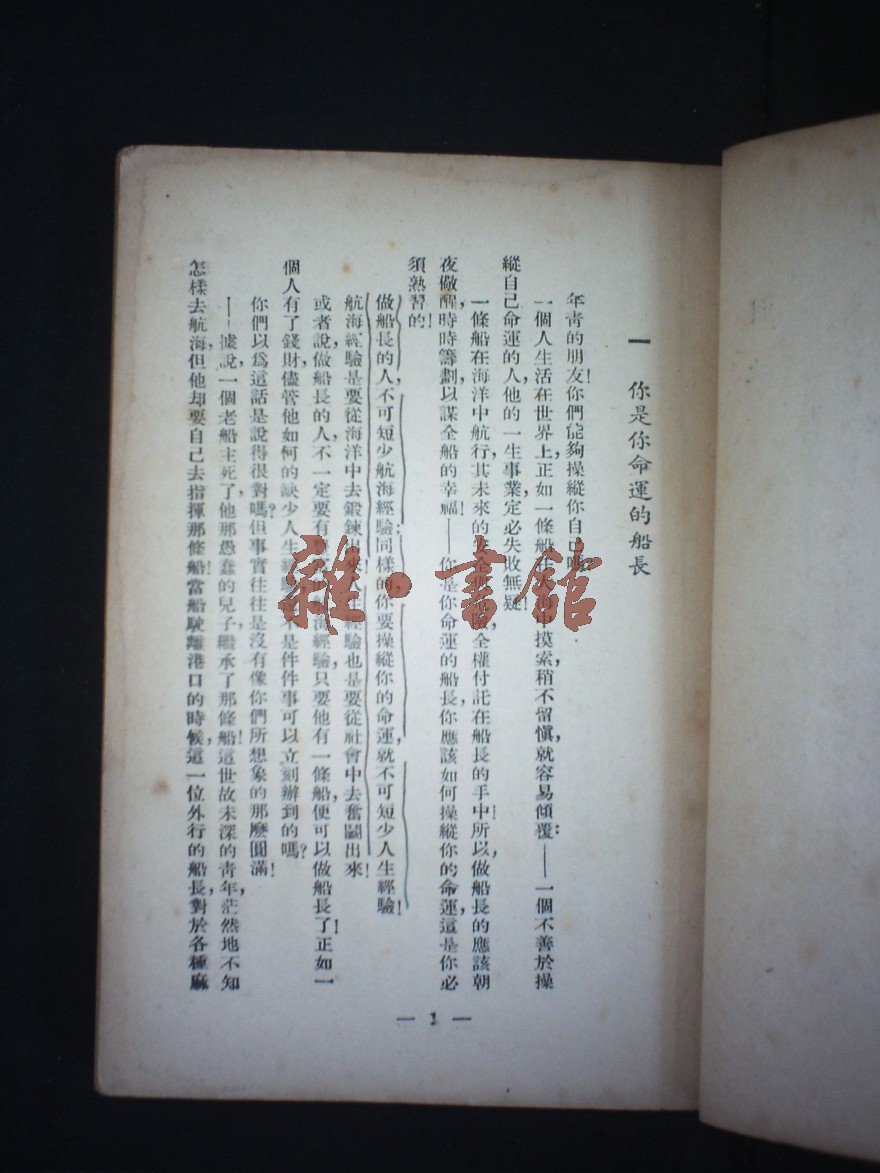 一　你是你命運的船長
年青的朋友！你們能夠操縱你自己嗎？
一個人生活在世界上，正如一條船在大海中摸索，稍不留愼，就容易傾覆：——一個不善於操
縱自己命運的人，他的一生事業定必失敗無疑！
一條船在海洋中航行，其未來的安全與危險全權付託在船長的手中！所以，做船長的應該朝
夜儆醒，時時籌劃，以謀全船的幸福！——你是你命運的船長，你應該如何操縱你的命運，這是你必
須熟習的！
做船長的人，不可短少航海經驗；同樣的，你要操縱你的命運，就不可短少人生經驗！
航海經驗是要從海洋中去鍛鍊出來！人生經驗也是要從社會中去奮鬭出來！
或者說：做船長的人，不一定要有 海經驗，只要他有一條船，便可以做船長了！正如一
個人有了錢財，儘管他如何的缺少人生經驗， 不是件件事可以立刻辦到的嗎？
你們以爲這話是說得很對嗎？但事實往往是沒有像你們所想象的那麽圓滿！
——據說，一個老船主死了，他那愚蠢的兒子，繼承了那條船！這世故未深的青年，茫然地不知
怎樣去航海，但他却要自己去指揮那條船！當船駛離港口的時候，這一位外行的船長，對於各種麻
— 1 —
雜·書館